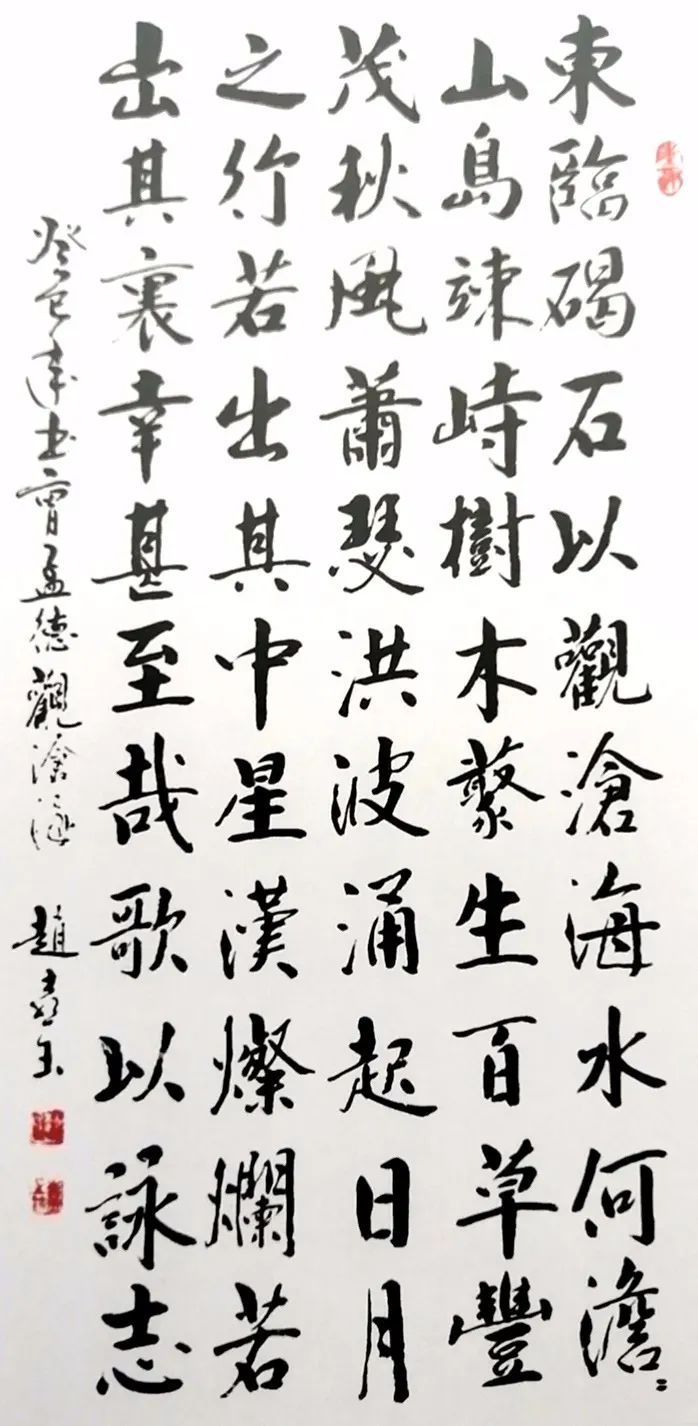 東臨碣石以觀滄海水何澹〻
山島竦峙樹木藂生百草豐
茂秋風蕭瑟洪波涌起日月
之行若出其中星漢燦爛若
出其裏幸甚至哉歌以詠志
癸巳年书曹孟德觀滄海
趙